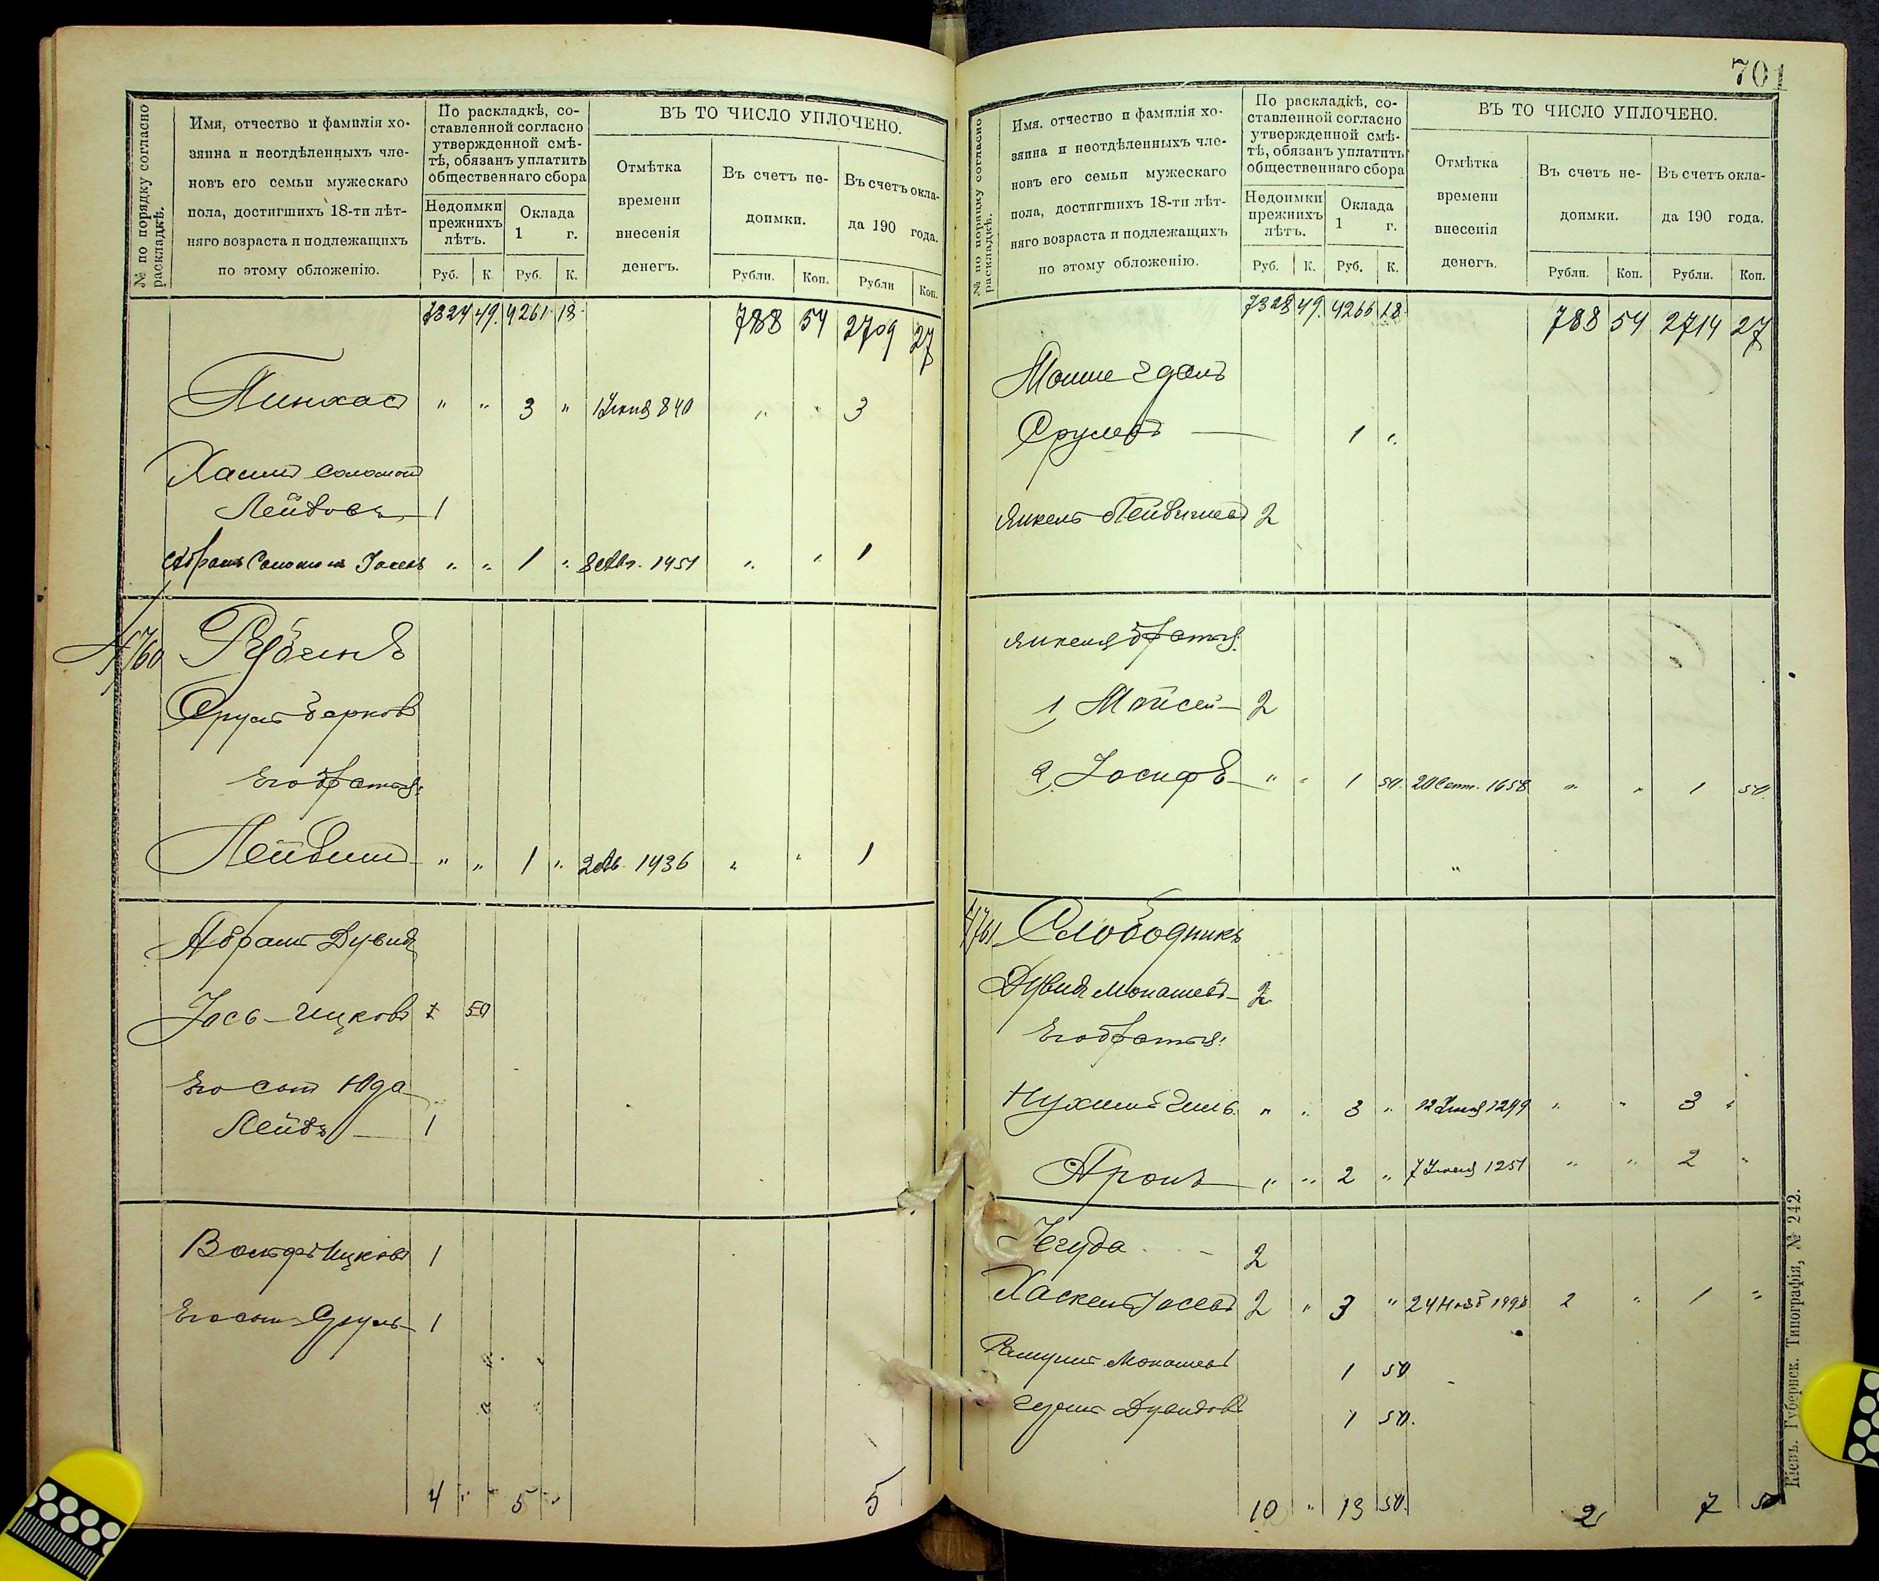 № по порядку согласно раскладкѣ.
Имя, отчество и фамилія хо-
зяина и неотдѣленныхъ чле-
новъ его семьи мужескаго
пола, достигшихъ 18-ти лѣт-
няго возраста и подлежащихъ
по этому обложенію.
По раскладкѣ, со-
ставленной согласно
утвержденной смѣ-
тѣ, обязанъ уплатить
общественнаго сбора
Недоимки
прежнихъ
лѣтъ.
Оклада
1 г.
Руб. К. Руб. К.
ВЪ ТО ЧИСЛО УПЛОЧЕНО.
Отмѣтка
времени
внесенія
денегъ.
Въ счетъ не-
доимки.
Въ счетъ окла-
да 190 года.
Рубли. Коп. Рубли Коп.
7324 49. 4261 18 788 54 2709 27
Пинхас " " 3 " 840 " " 3
Хаимъ Соломонъ
Лейбовъ 1
Абрамъ Соломонъ Іосевъ " " 1 " 8 Авг. 1451 " " 1
4760 Рубинъ
Сруль Берковъ
Его братья:
Лейбишъ " " 1 " 2 Ав. 1436 " " 1
Абрамъ Дувидъ
Іось-Ицковъ 1 50
Его сынъ Юда
Лейбъ 1
Вольфъ Ицковъ 1
Его сынъ Сруль 1
4 " " 5 " 5
701
№ по порядку согласно раскладкѣ.
Имя, отчество и фамилія хо-
зяина и неотдѣленныхъ чле-
новъ его семьи мужескаго
пола, достигшихъ 18-ти лѣт-
няго возраста и подлежащихъ
по этому обложенію.
По раскладкѣ, со-
ставленной согласно
утвержденной смѣ-
тѣ, обязанъ уплатить
общественнаго сбора
Недоимки
прежнихъ
лѣтъ.
Оклада
1 г.
Руб. К. Руб. К.
ВЪ ТО ЧИСЛО УПЛОЧЕНО.
Отмѣтка
времени
внесенія
денегъ.
Въ счетъ не-
доимки.
Въ счетъ окла-
да 190 года.
Рубли. Коп. Рубли. Коп.
7328 49. 4266 18 788 54 2714 27
Мошие Гдаль
Срулевъ 1 "
Янкель Лейбишевъ 2
Янкеля братья:
1, Мойсей 2
2, Іосифъ " " 1 50. 20 Сент. 1658 " " 1 50.
4761 Слободникъ
Дувидъ Монашевъ 2
Его братья:
Нухимъ Гиль " " 3 " 1299 " " 3 "
Аронъ " " 2 " 1251 " " 2 "
Іегуда 2
Хаскель Іосевъ 2 " 3 " 24 Нояб 2 " 1 "
Монашевъ 1 50
Дувидовъ 1 50.
10 " 13 50. 2 7 50
Кіевъ. Губернск. Типографія, № 242.